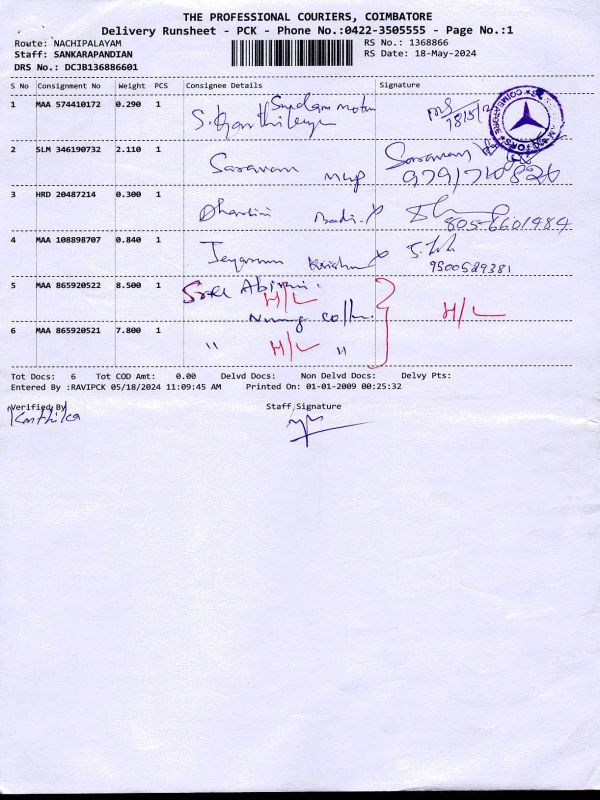 THE PROFESSIONAL COURIERS, COIMBATORE
Delivery Runsheet - PCK - Phone No.:0422-3505555 - Page No.:1
Route: NACHIPALAYAM RS No.: 1368866
Staff: SANKARAPANDIAN RS Date: 18-May-2024
DRS No.: DCJB136886601
S No Consignment No Weight PCS Consignee Details Signature
1 MAA 574410172 0.290 1
2 SLM 346190732 2.110 1 Saravanan Saravanan
3 HRD 20487214 0.300 1 Dharshini
8056601484
4 MAA 108898707 0.840 1 Krishna
9500529381
5 MAA 865920522 8.500 1 Sree Abirami
H/L H/L
Nursing
6 MAA 865920521 7.800 1 " H/L "
Tot Docs: 6 Tot COD Amt: 0.00 Delvd Docs: Non Delvd Docs: Delvy Pts:
Entered By :RAVIPCK 05/18/2024 11:09:45 AM Printed On: 01-01-2009 00:25:32
Verified By Staff Signature
Karthika